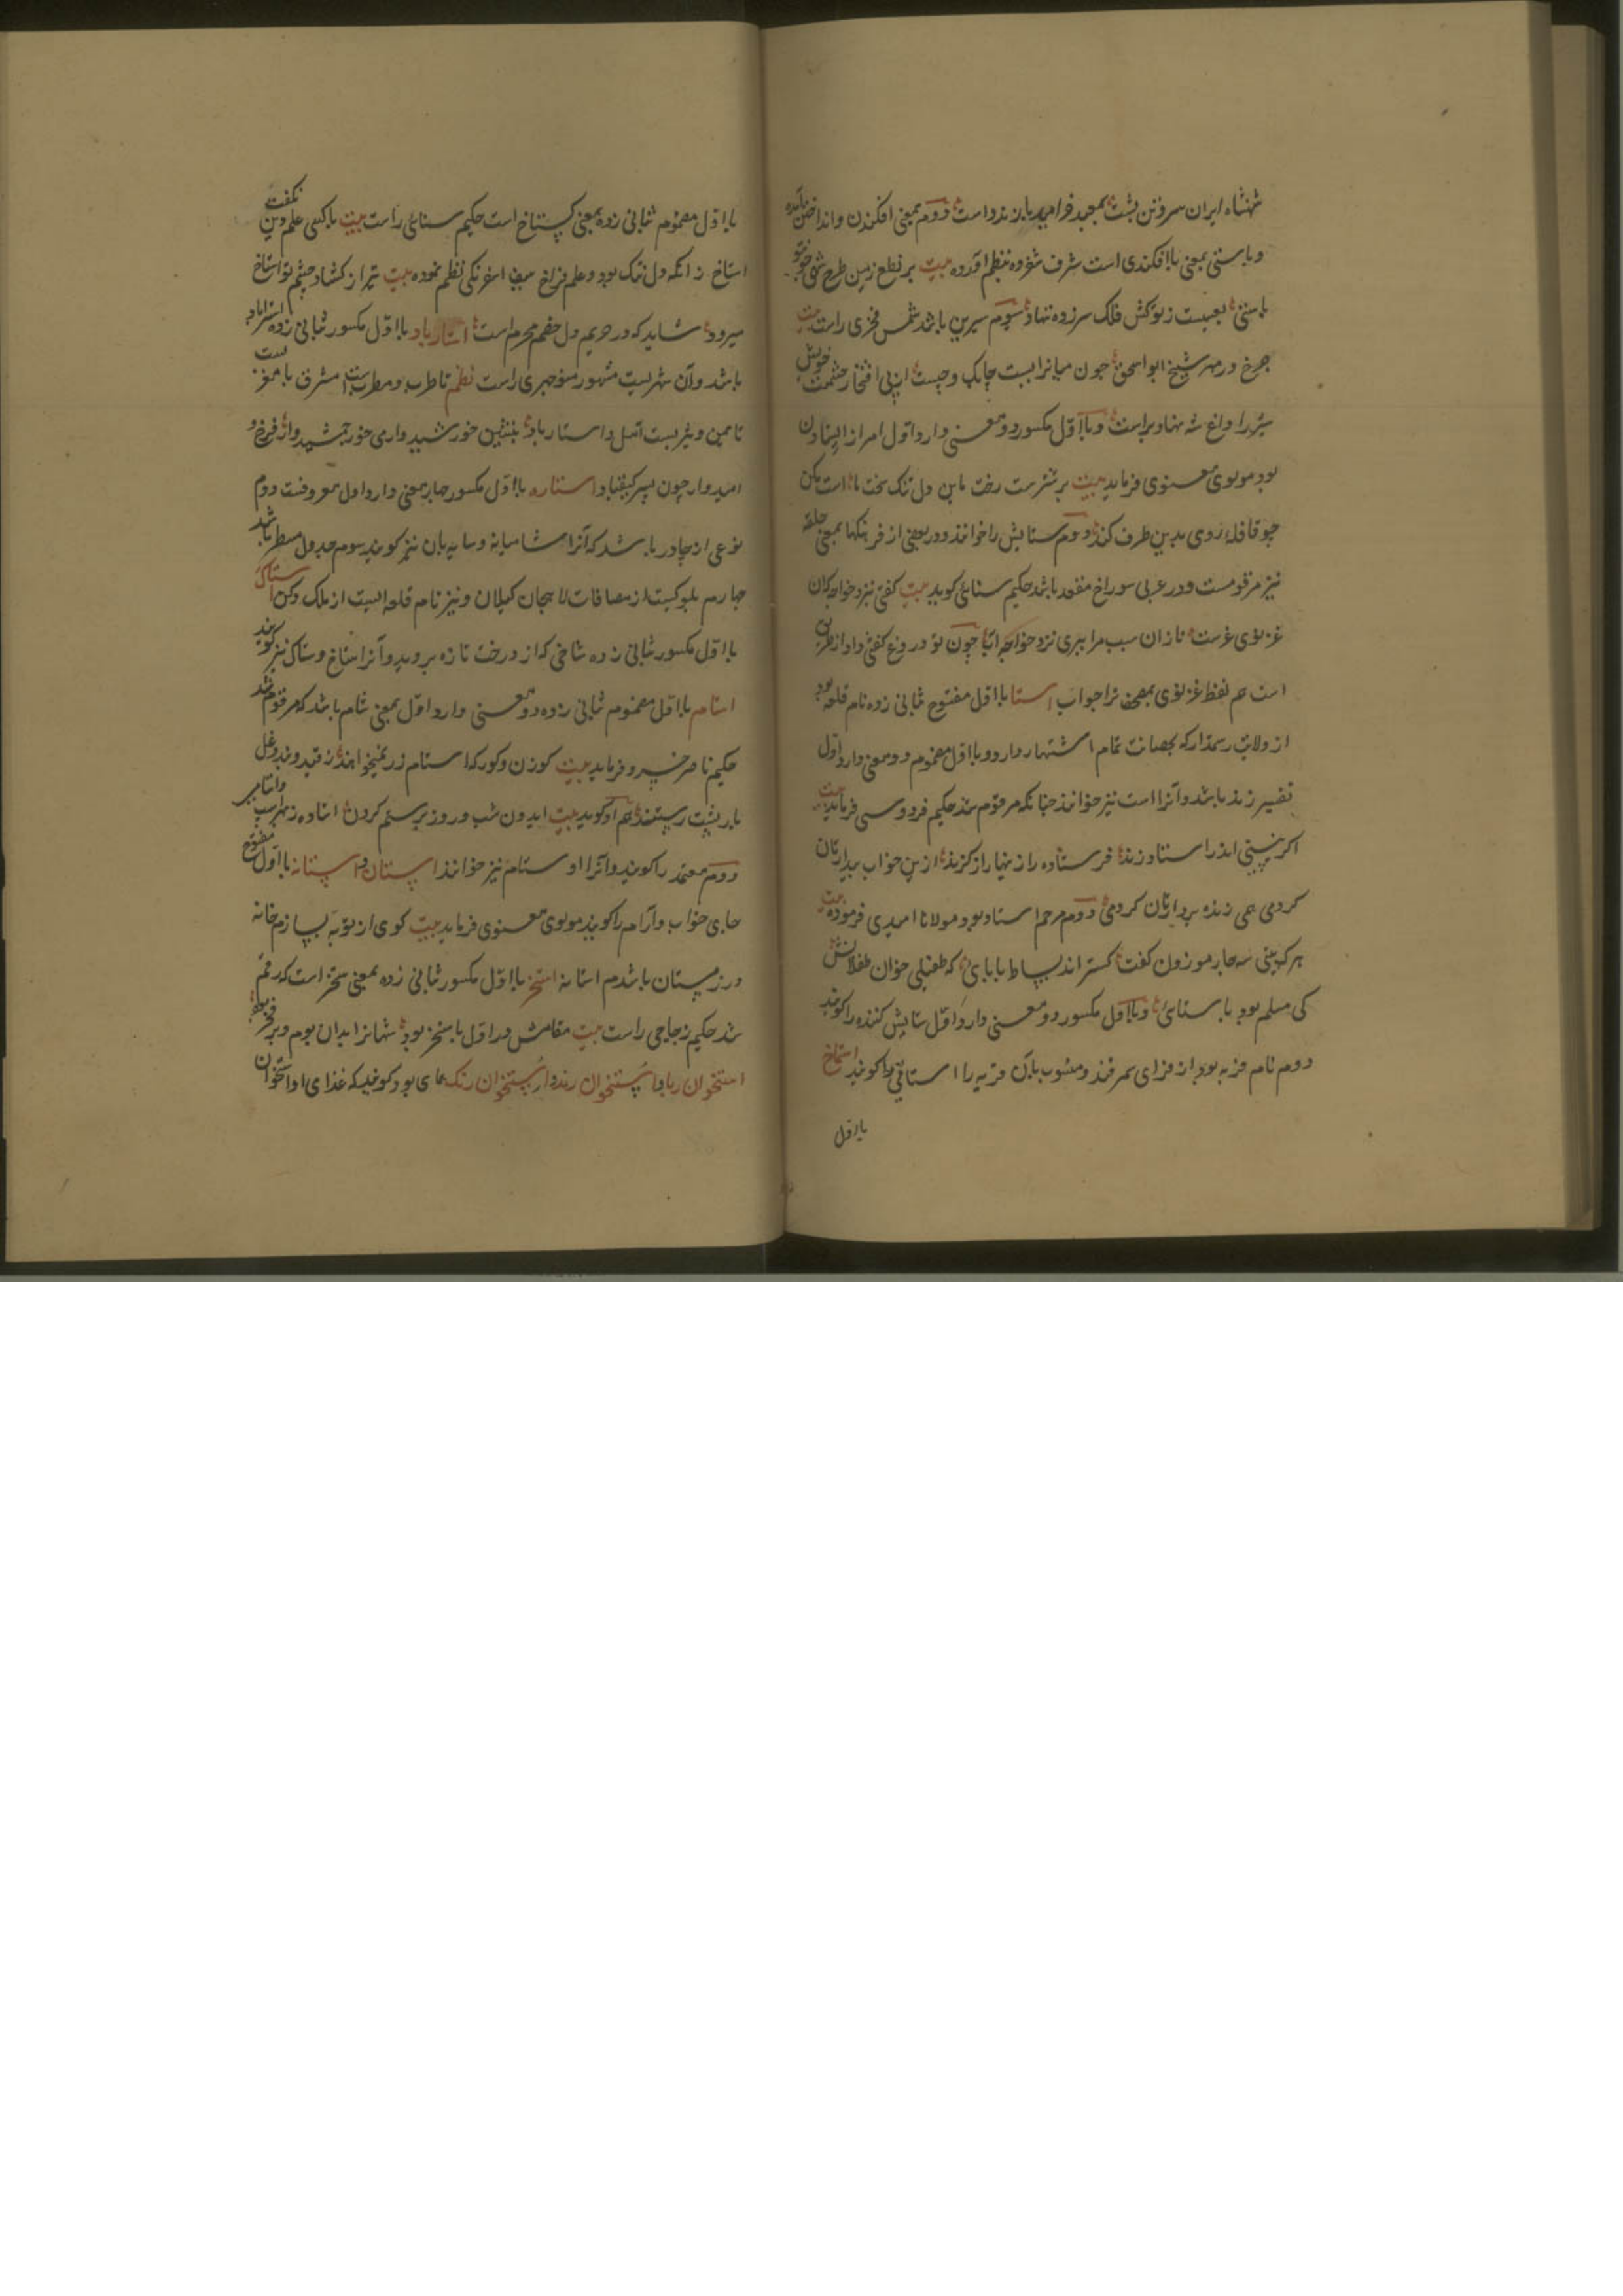 شهنشاه ایران سر و تن بشت بمعبد فرامید یا زند و است دوم بمعنی افکندن و انداختن آمده
و باستنی بمعنی باافکندی است شرف شفروه منظم آورده بیت بر نطع زمین طرح شهی
باستنی لعبیست ز توکش فلک سر زده نهاد سوم سیرین باشد شمس فخری راست بیت
چرخ در مهر شیخ ابو اسحق چون میانرا ببست چابک و چست از پی افتخار حشمت خویش
را داغ شه نهاد براست و بااول مکسور دو معنی دارد اول امر از ایستادن
بود مولوی معنوی فرماید بیت بر شتر ست رخت ما بن دل تنک سخت ما است مکن
چو قافله روی بدین طرف کند دوم ستایش را خوانند و در بعضی از فرهنکها بمعنی حلقه
نیز مرقومست و در عربی سوراخ مقعد باشد حکیم سنائی کوید بیت کفتی نزد خواجه کان
غزنوی غرست تا زان سبب مرا ببری نزد خواجه اتا چون تو دروغ کفتی و داد از طریق
است هم لفظ غزنوی بمصحف ترا جواب استا بااول مفتوح ثانی زده نام قلعه بود
از ولایت رستمدار که بحصانت تمام اشتهار دارد و بااول مضموم دو معنی دارد اول
تفسیر زند باشد و آنرا است نیز خوانند چنانکه مرقوم شد حکیم فردوسی فرماید بیت
اکر نپیبنی اندر استا و زند فرستاده را زینهار از کزند ازین خواب بیدارتان
کردمی همی زنده بردارتان کردمی دوم مرحم استاد بود مولانا امیدی فرموده بیت
هر که بیتی سه چار موزون کفت کستراند بساط بابائی که طفیلی خوان طفلانش
کی مسلم بود باستائی و بااول مکسور دو معنی دارد اول ستایش کننده را کویند
دوم نام قریه بود از قرای سمرقند و منسوب بآن قریه را استائی را کویند استاخ
بااول
بااول مضموم ثانی زده بمعنی کستاخ است حکیم سنائی راست بیت با کسی علم دین نکفت
استاخ زانکه دل تنک بود و علم فراخ سیف اسفرنکی نظم نموده بیت تیر از کشاد چشم تو استاخ
میرود شاید که در حریم دل خصم محرم است استارباد بااول مکسور ثانی زده استراباد
باشد و آن شهریست مشهور منوچهری راست نظم تا طرب و مطرب است مشرق با مغرب
تا یمین و یثرب است آمل و استارباد بنشین خورشیدوار می خور جمشیدوار فرخ و
امیدوار چون پسر کیقباد استاره بااول مکسور چهار معنی دارد اول معروفست دوم
نوعی از چادر باشد که آنرا شامیانه و سایه بان نیز کویند سوم جدول مسطر باشد
چهارم بلوکیست از مضافات لاهجان کیلان و نیز نام قلعه ایست از ملک دکن استاک
بااول مکسور ثانی زده شاخی که از درخت تازه بروید و آنرا استاخ و ستاک نیز کویند
استام بااول مضموم ثانی زده دو معنی دارد اول بمعنی ستام باشد که مرقوم شد
حکیم ناصر خسرو فرماید بیت کوزن و کور که استام زر نمیخواهند ز قید و بند و غل
بار پشت رستند هم او کوید بیت ایدون شب و روز بر ستم کردن استاده ز بهر اسب و استامیر
دوم معتمد را کویند و آنرا اوستام نیز خوانند استان و استانه بااول مفتوح
جای خواب و آرام را کویند مولوی معنوی فرماید بیت کوی از توبه بسازم خانه
در زمستان باشدم استانه استخر بااول مکسور ثانی زده بمعنی ستخر است که رقم
شد حکیم زجاجی راست بیت مقامش در اول باستخر بود شهانرا بدان بوم و بر فخر بود
استخوان ربا و استخوان رند و استخوان رنک همای بود کویند که غذای او استخوان